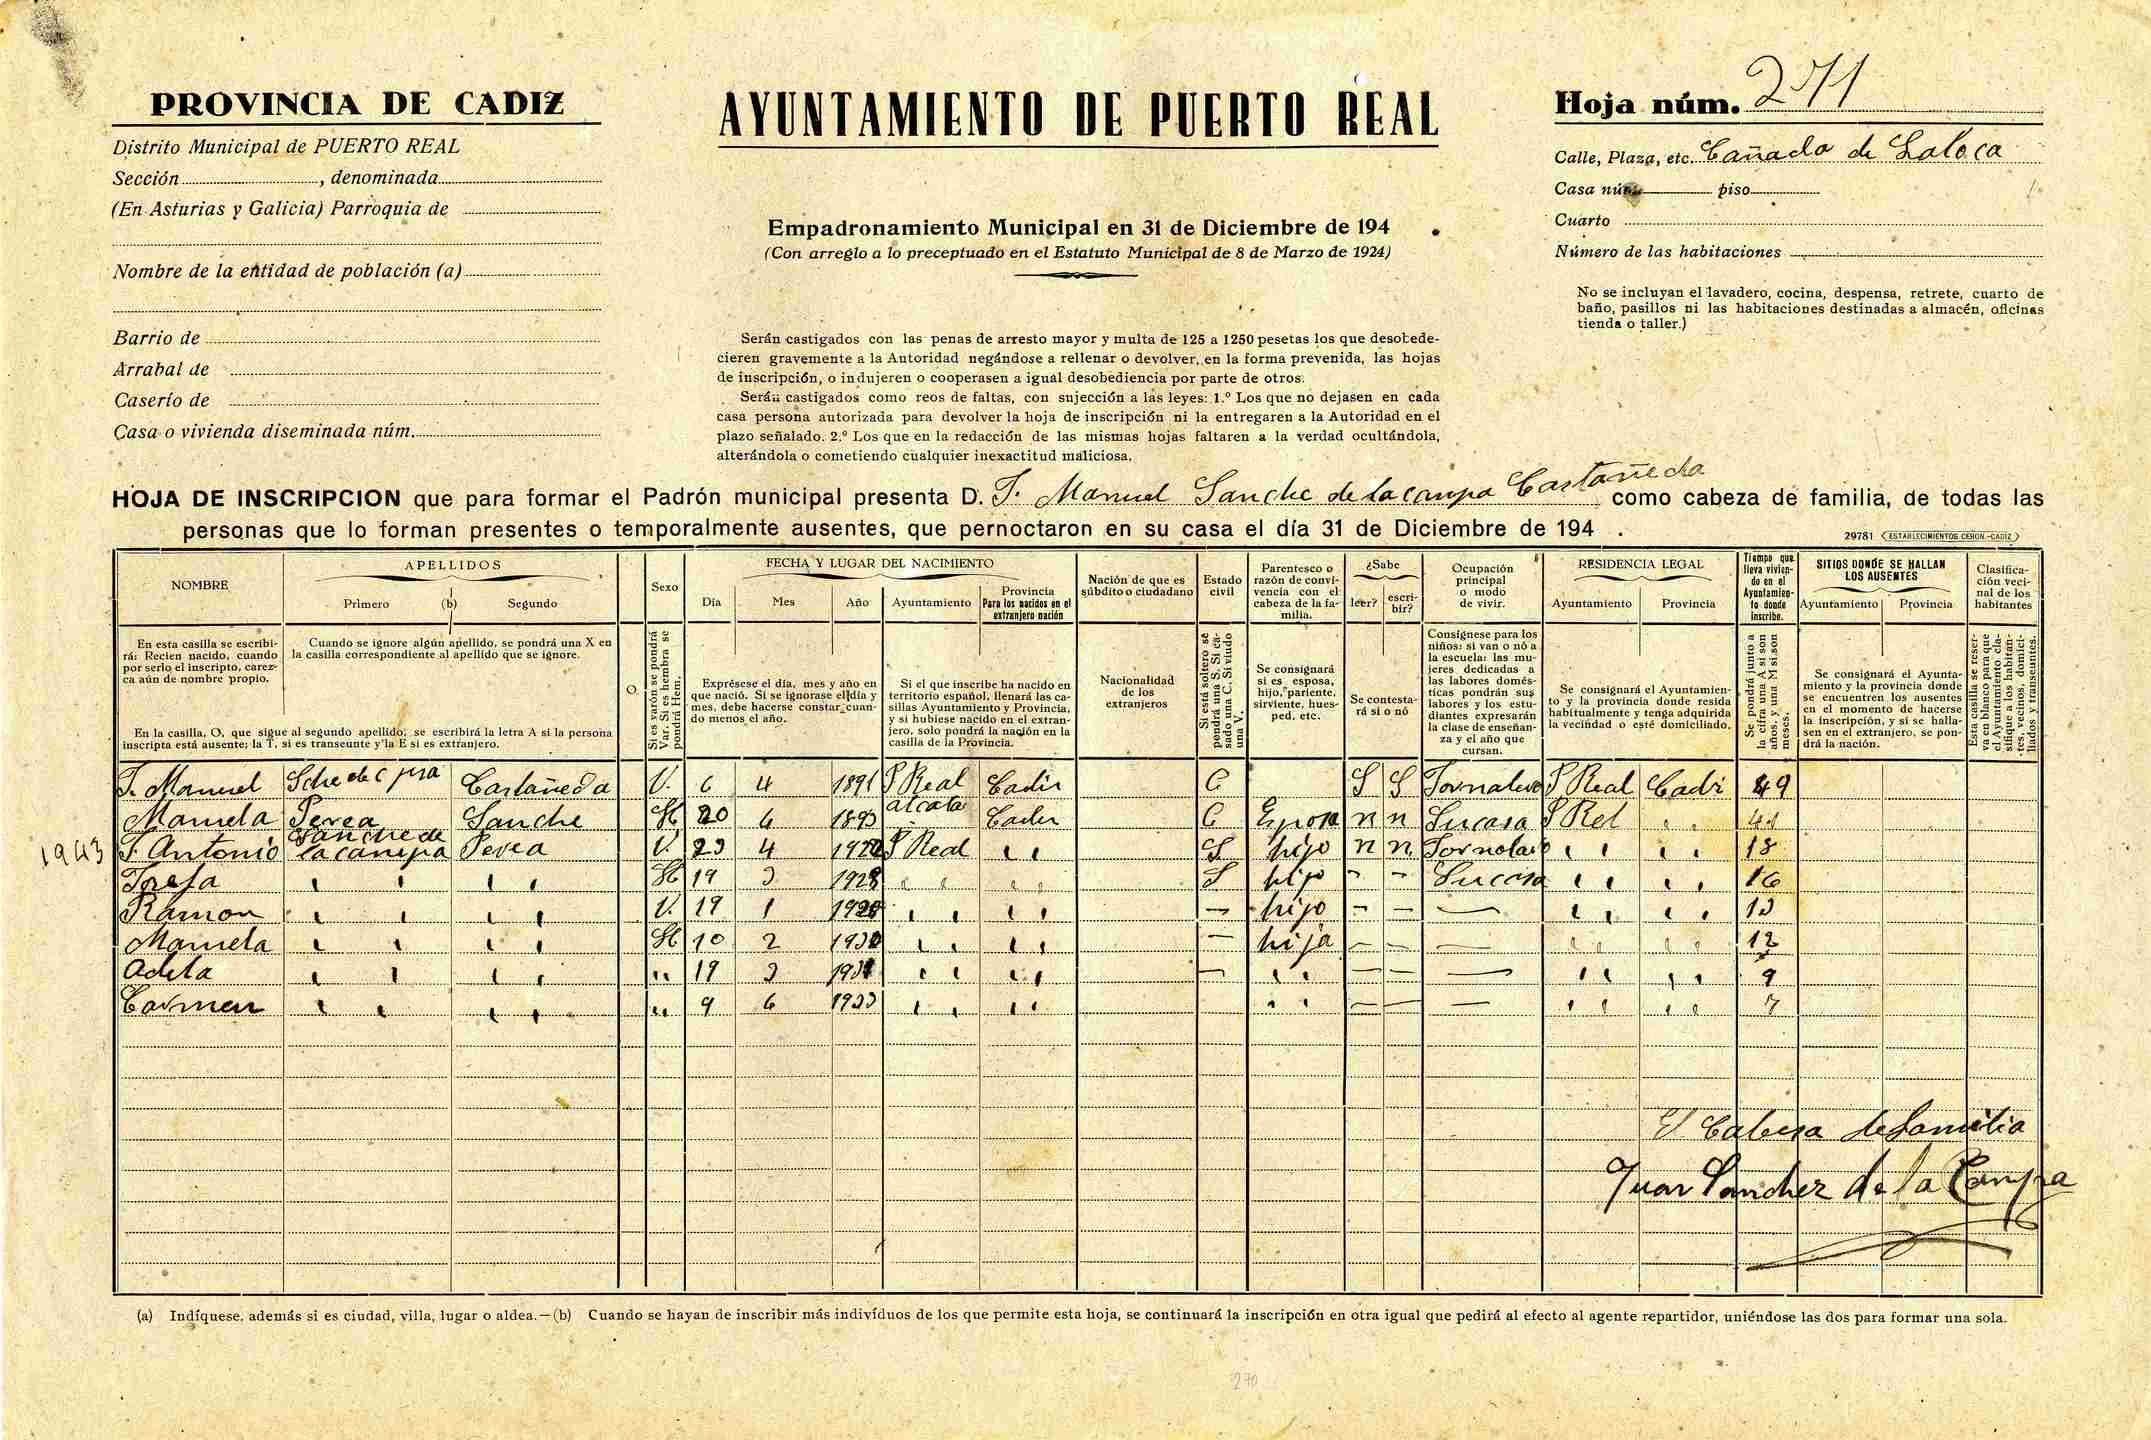 PROVINCIA DE CADIZ
Distrito Municipal de PUERTO REAL
Sección , denominada
(En Asturias y Galicia) Parroquia de
Nombre de la entidad de población (a)
Barrio de
Arrabal de
Caserío de
Casa o vivienda diseminada núm.
AYUNTAMIENTO DE PUERTO REAL
Empadronamiento Municipal en 31 de Diciembre de 194 .
(Con arreglo a lo preceptuado en el Estatuto Municipal de 8 de Marzo de 1924)
Serán castigados con las penas de arresto mayor y multa de 125 a 1250 pesetas los que desobede-
cieren gravemente a la Autoridad negándose a rellenar o devolver, en la forma prevenida, las hojas
de inscripción, o indujeren o cooperasen a igual desobediencia por parte de otros.
Serán castigados como reos de faltas, con sujección a las leyes: 1.º Los que no dejasen en cada
casa persona autorizada para devolver la hoja de inscripción ni la entregaren a la Autoridad en el
plazo señalado. 2.º Los que en la redacción de las mismas hojas faltaren a la verdad ocultándola,
alterándola o cometiendo cualquier inexactitud maliciosa.
Hoja núm. 271
Calle, Plaza, etc. Cañada de Laloca
Casa núm. piso
Cuarto
Número de las habitaciones
No se incluyan el lavadero, cocina, despensa, retrete, cuarto de
baño, pasillos ni las habitaciones destinadas a almacén, oficinas
tienda o taller.)
HOJA DE INSCRIPCION que para formar el Padrón municipal presenta D. J. Manuel Sanche de la campa Castañeda como cabeza de familia, de todas las
personas que lo forman presentes o temporalmente ausentes, que pernoctaron en su casa el día 31 de Diciembre de 194 .
29781 (ESTABLECIMIENTOS CERON.-CADIZ)
NOMBRE
APELLIDOS
Primero (b) Segundo
O
Sexo
FECHA Y LUGAR DEL NACIMIENTO
Día Mes Año Ayuntamiento
Provincia
Para los nacidos en el
extranjero nación
Nación de que es
súbdito o ciudadano
Estado
civil
Parentesco o
razón de convi-
vencia con el
cabeza de la fa-
milia.
¿Sabe
leer? escri-
bir?
Ocupación
principal
o modo
de vivir.
RESIDENCIA LEGAL
Ayuntamiento Provincia
Tiempo que
lleva vivien-
do en el
Ayuntamien-
to donde
inscribe.
SITIOS DONDE SE HALLAN
LOS AUSENTES
Ayuntamiento Provincia
Clasifica-
ción veci-
nal de los
habitantes
En esta casilla se escribi-
rá: Recien nacido, cuando
por serlo el inscripto, carez-
ca aún de nombre propio.
Cuando se ignore algún apellido, se pondrá una X en
la casilla correspondiente al apellido que se ignore.
En la casilla, O, que sigue al segundo apellido, se escribirá la letra A si la persona
inscripta está ausente; la T, si es transeunte y la E si es extranjero.
Si es varón se pondrá
Var. Si es hembra se
pondrá Hem.
Exprésese el día, mes y año en
que nació. Si se ignorase el día y
mes, debe hacerse constar cuan-
do menos el año.
Si el que inscribe ha nacido en
territorio español, llenará las ca-
sillas Ayuntamiento y Provincia,
y si hubiese nacido en el extran-
jero, solo pondrá la nación en la
casilla de la Provincia.
Nacionalidad
de los
extranjeros
Si está soltero se
pondrá una S. Si ca-
sado una C. Si viudo
una V.
Se consignará
si es esposa,
hijo, pariente,
sirviente, hues-
ped, etc.
Se contesta-
rá si o nó
Consígnese para los
niños: si van o nó a
la escuela: las mu-
jeres dedicadas a
las labores domés-
ticas pondrán sus
labores y los estu-
diantes expresarán
la clase de enseñan-
za y el año que
cursan.
Se consignará el Ayuntamien-
to y la provincia donde resida
habitualmente y tenga adquirida
la vecindad o esté domiciliado.
Se pondrá junto a
la cifra una A si son
años, y una M si son
meses.
Se consignará el Ayunta-
miento y la provincia donde
se encuentren los ausentes
en el momento de hacerse
la inscripción, y si se halla-
sen en el extranjero, se pon-
drá la nación.
Esta casilla se reser-
va en blanco para que
el Ayuntamiento cla-
sifique a los habitan-
tes, vecinos, domici-
liados y transeuntes.
J. Manuel Sche de c pra Castañeda V. 6 4 1891 P Real Cadir C S S Jornalero P Real Cadi 49
Manuela Perea Sanche H 20 6 1893 alcala Cader C Esposa n n Sucasa P Rel " 41
1943 J. Antonio Sanche de la campa Perea V. 23 4 1922 P Real " S hijo n n Jornolaro " " 18
Josefa " " " " H 19 3 1925 " " S hijo - - Sucasa " " 16
Ramon " " " " V. 19 1 1928 " " - hijo - - - " " 13
Manuela " " " " H 10 2 1930 " " - hija - - - " " 12
Adela " " " " " 19 3 1931 " " - " - - - " " 9
Carmen " " " " " 9 6 1933 " " " - - - " " 7
El Cabesa de familia
Juan Sanchez de la Campa
(a) Indíquese, además si es ciudad, villa, lugar o aldea.—(b) Cuando se hayan de inscribir más indivíduos de los que permite esta hoja, se continuará la inscripción en otra igual que pedirá al efecto al agente repartidor, uniéndose las dos para formar una sola.
270